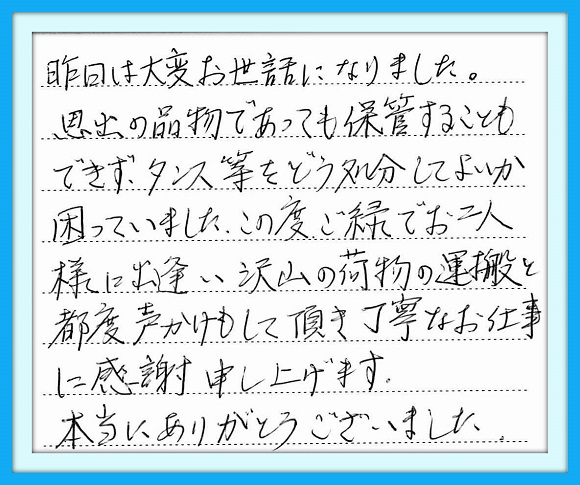 昨日は大変お世話になりました。
思出の品物であっても保管することも
できず、タンス等をどう処分してよいか
困っていました、この度ご縁でお二人
様に出逢い沢山の荷物の運搬と
都度声かけもして頂き丁寧なお仕事
に感謝申し上げます。
本当にありがとうございました。